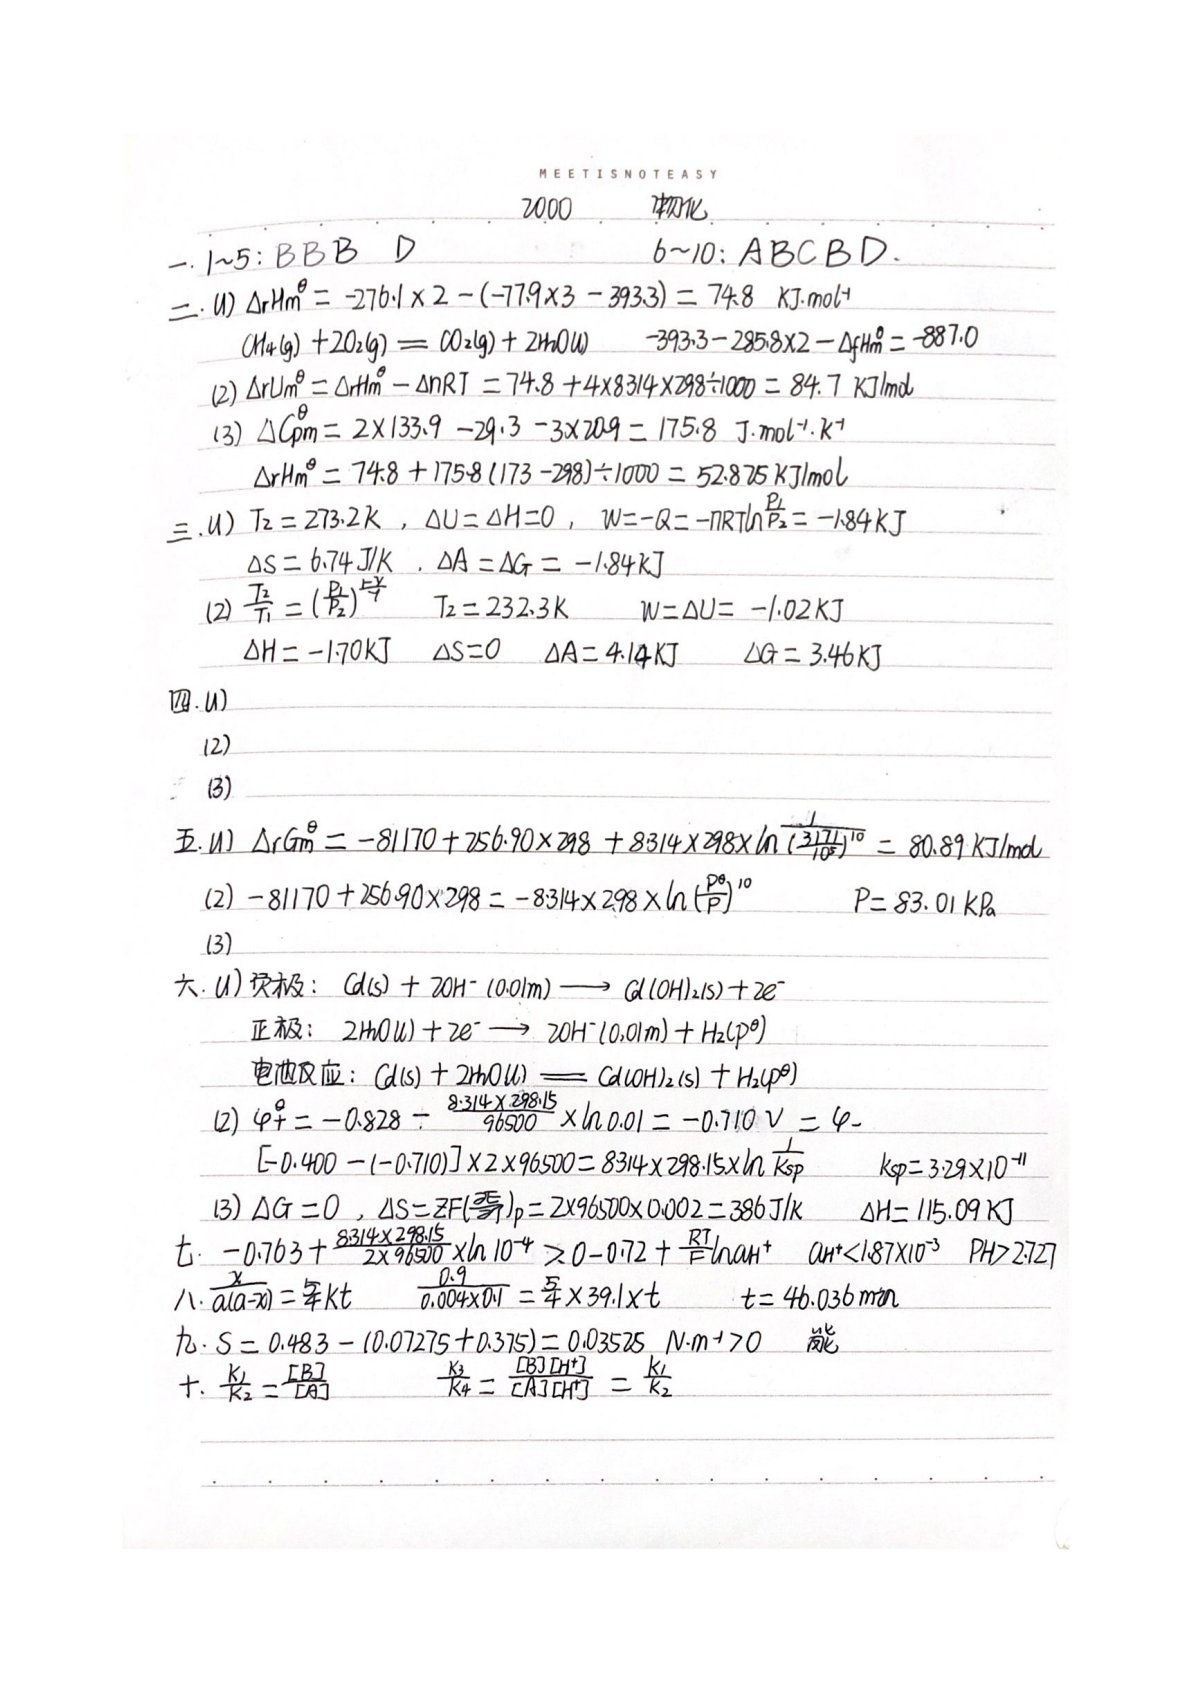 MEETISNOTEASY
2000 物化
一. 1~5: BBB D 6~10: ABCBD.
二. (1) ΔrHm^θ = -276.1×2-(-77.9×3-393.3) = 74.8 KJ·mol⁻¹
CH4(g)+2O2(g) = CO2(g)+2H2O(l) -393.3-285.8×2-ΔfHm^θ = -887.0
(2) ΔrUm^θ = ΔrHm^θ-ΔnRT = 74.8+4×8.314×298÷1000 = 84.7 KJ/mol
(3) ΔCpm^θ = 2×133.9-29.3-3×20.9 = 175.8 J·mol⁻¹·K⁻¹
ΔrHm^θ = 74.8+175.8(173-298)÷1000 = 52.825 KJ/mol
三. (1) T2 = 273.2K , ΔU=ΔH=0 , W=-Q=-nRTln P1/P2 = -1.84KJ
ΔS = 6.74J/K . ΔA=ΔG = -1.84KJ
(2) T2/T1 = (P1/P2)^((1-γ)/γ) T2 = 232.3K W=ΔU= -1.02KJ
ΔH = -1.70KJ ΔS=0 ΔA=4.14KJ ΔG=3.46KJ
四. (1)
(2)
(3)
五. (1) ΔrGm^θ = -81170+256.90×298+8.314×298×ln 1/(3171/10⁵)^10 = 80.89KJ/mol
(2) -81170+256.90×298 = -8.314×298×ln(P^θ/P)^10 P=83.01kPa
(3)
六. (1) 负极: Cd(s)+2OH⁻(0.01m) → Cd(OH)2(s)+2e⁻
正极: 2H2O(l)+2e⁻ → 2OH⁻(0.01m)+H2(p^θ)
电池反应: Cd(s)+2H2O(l) = Cd(OH)2(s)+H2(p^θ)
(2) φ+^θ = -0.828 - 8.314×298.15/96500 ×ln0.01 = -0.710V = φ-
[-0.400-(-0.710)]×2×96500 = 8.314×298.15×ln 1/Ksp Ksp=3.29×10⁻¹¹
(3) ΔG=0 , ΔS=ZF(∂E/∂T)p=2×96500×0.002=386J/K ΔH=115.09KJ
七. -0.763+8.314×298.15/2×96500 ×ln10⁻⁴ > 0-0.72+RT/F lnaH⁺ aH⁺<1.87×10⁻³ PH>2.727
八. x/a(a-x) = 5/4 kt 0.9/0.004×0.1 = 5/4×39.1×t t=46.036min
九. S=0.483-(0.07275+0.375)=0.03525 N·m⁻¹>0 能
十. K1/K2 = [B]/[A] K3/K4 = [B][H⁺]/[A][H⁺] = K1/K2